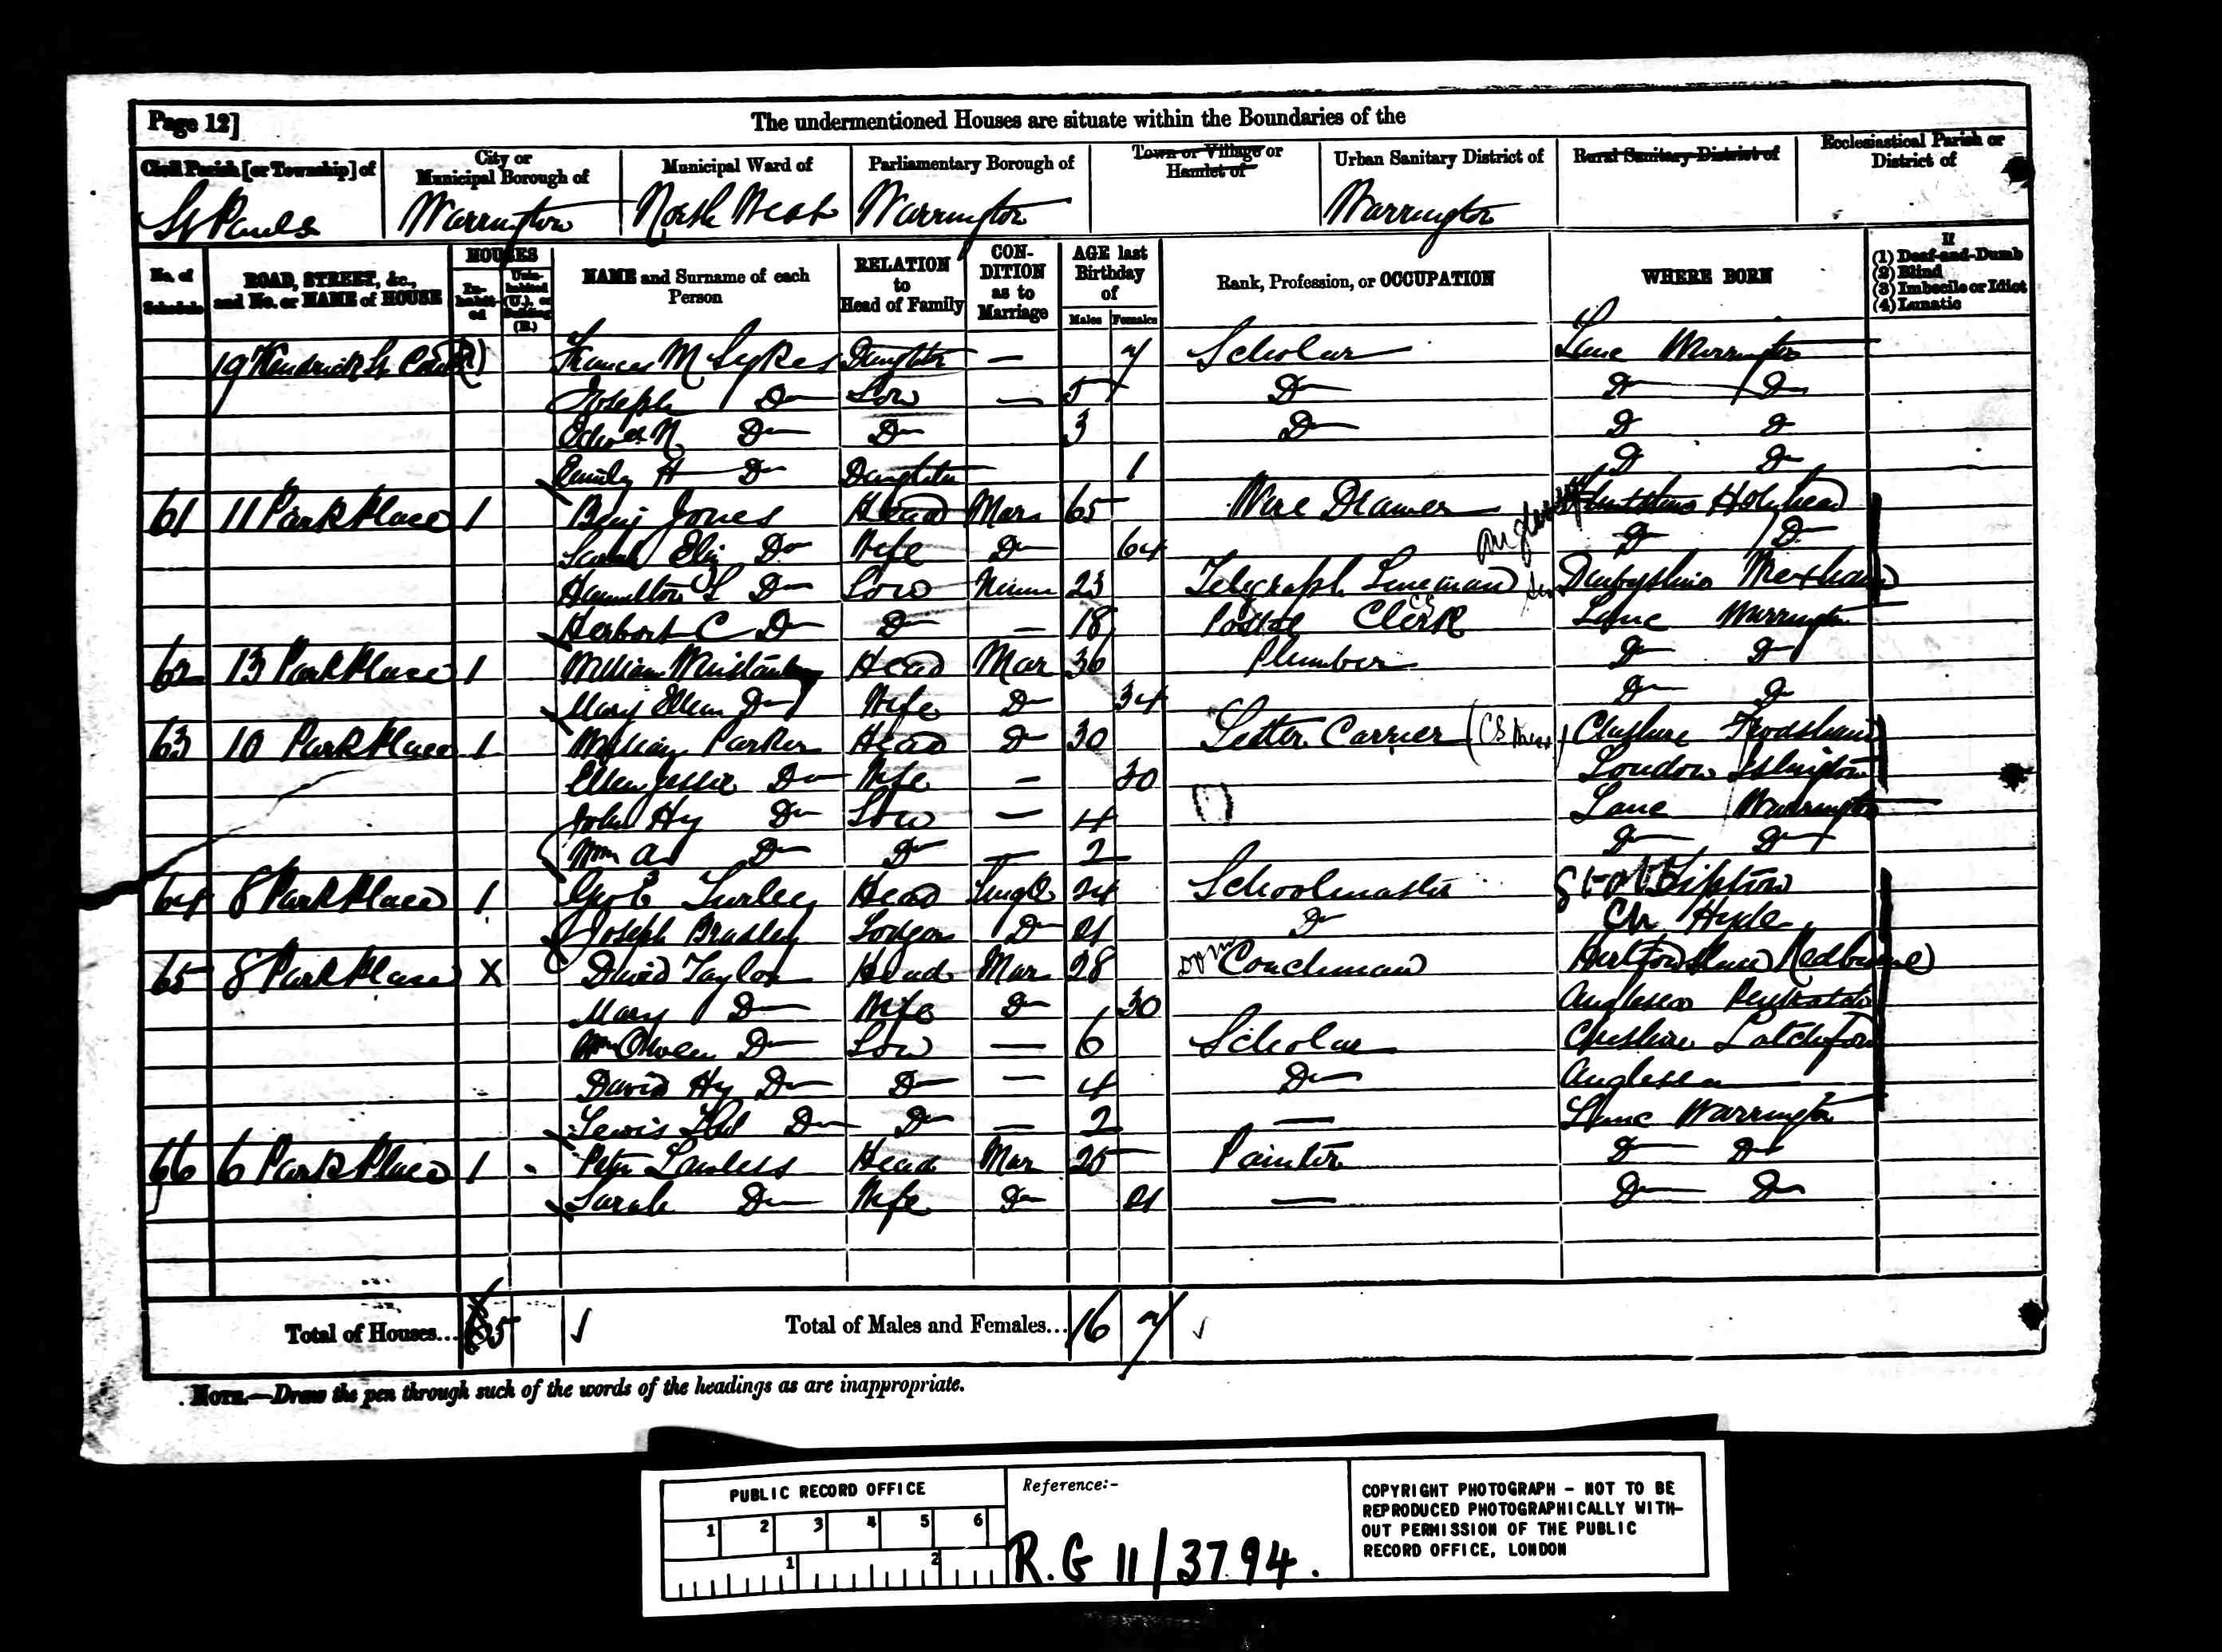 Page 12]
The undermentioned Houses are situate within the Boundaries of the
Civil Parish [or Township] of
City or Municipal Borough of
Municipal Ward of
Parliamentary Borough of
Town or Village or Hamlet of
Urban Sanitary District of
Rural Sanitary District of
Ecclesiastical Parish or District of
St Pauls
Warrington
North West
Warrington
Warrington
No. of Schedule
ROAD, STREET, &c., and No. or NAME of HOUSE
HOUSES
In-habit-ed
Unin-habited (U.), or Building (B.)
NAME and Surname of each Person
RELATION to Head of Family
CON-DITION as to Marriage
AGE last Birthday of
Males
Females
Rank, Profession, or OCCUPATION
WHERE BORN
If
(1) Deaf-and-Dumb
(2) Blind
(3) Imbecile or Idiot
(4) Lunatic
19 Kendrick St Frances M Sykes Daughter — 7 Scholar Lanc Warrington
Joseph Do Son — 5 Do Do Do
Edwd N Do Do 3 Do Do Do
Emily H Do Daughter 1 Do Do
61 11 Park Place 1 Benj Jones Head Mar 65 Wire Drawer Anglesey Holyhead
Sarah Eliz Do Wife Do 64 Do Do
Hamilton L Do Son Unm 23 Telegraph Lineman
Herbert C Do Do — 18 Postal Clerk CS Lanc Warrington
62 13 Park Place 1 William Head Mar 36 Plumber Do Do
Mary Ellen Do Wife Do 34 Do Do
63 10 Park Place 1 William Parker Head Do 30 Letter Carrier (CS Mess) Cheshire Frodsham
Ellen Jessie Do Wife — 30 London Islington
John Hy Do Son — 4 Lanc Warrington
Wm A Do Do — 2 Do Do
64 8 Park Place 1 Geo E Turley Head Single 24 Schoolmaster Tipton
Joseph Bradley Lodger Do 21 Do Ch Hyde
65 8 Park Place X David Taylor Head Mar 28 Dom Coachman Hertfordshire Redbourne
Mary Do Wife Do 30 Anglesea
Wm Owen Do Son — 6 Scholar Cheshire Latchford
David Hy Do Do — 4 Do Anglesea
Lewis Do Do — 2 — Lanc Warrington
66 6 Park Place 1 Peter Lawless Head Mar 25 Painter Do Do
Sarah Do Wife Do 21 — Do Do
Total of Houses... 5
Total of Males and Females... 16 7
NOTE.—Draw the pen through such of the words of the headings as are inappropriate.
PUBLIC RECORD OFFICE
1 2 3 4 5 6
1 2
Reference:-
R.G 11/3794.
COPYRIGHT PHOTOGRAPH – NOT TO BE
REPRODUCED PHOTOGRAPHICALLY WITH-
OUT PERMISSION OF THE PUBLIC
RECORD OFFICE, LONDON